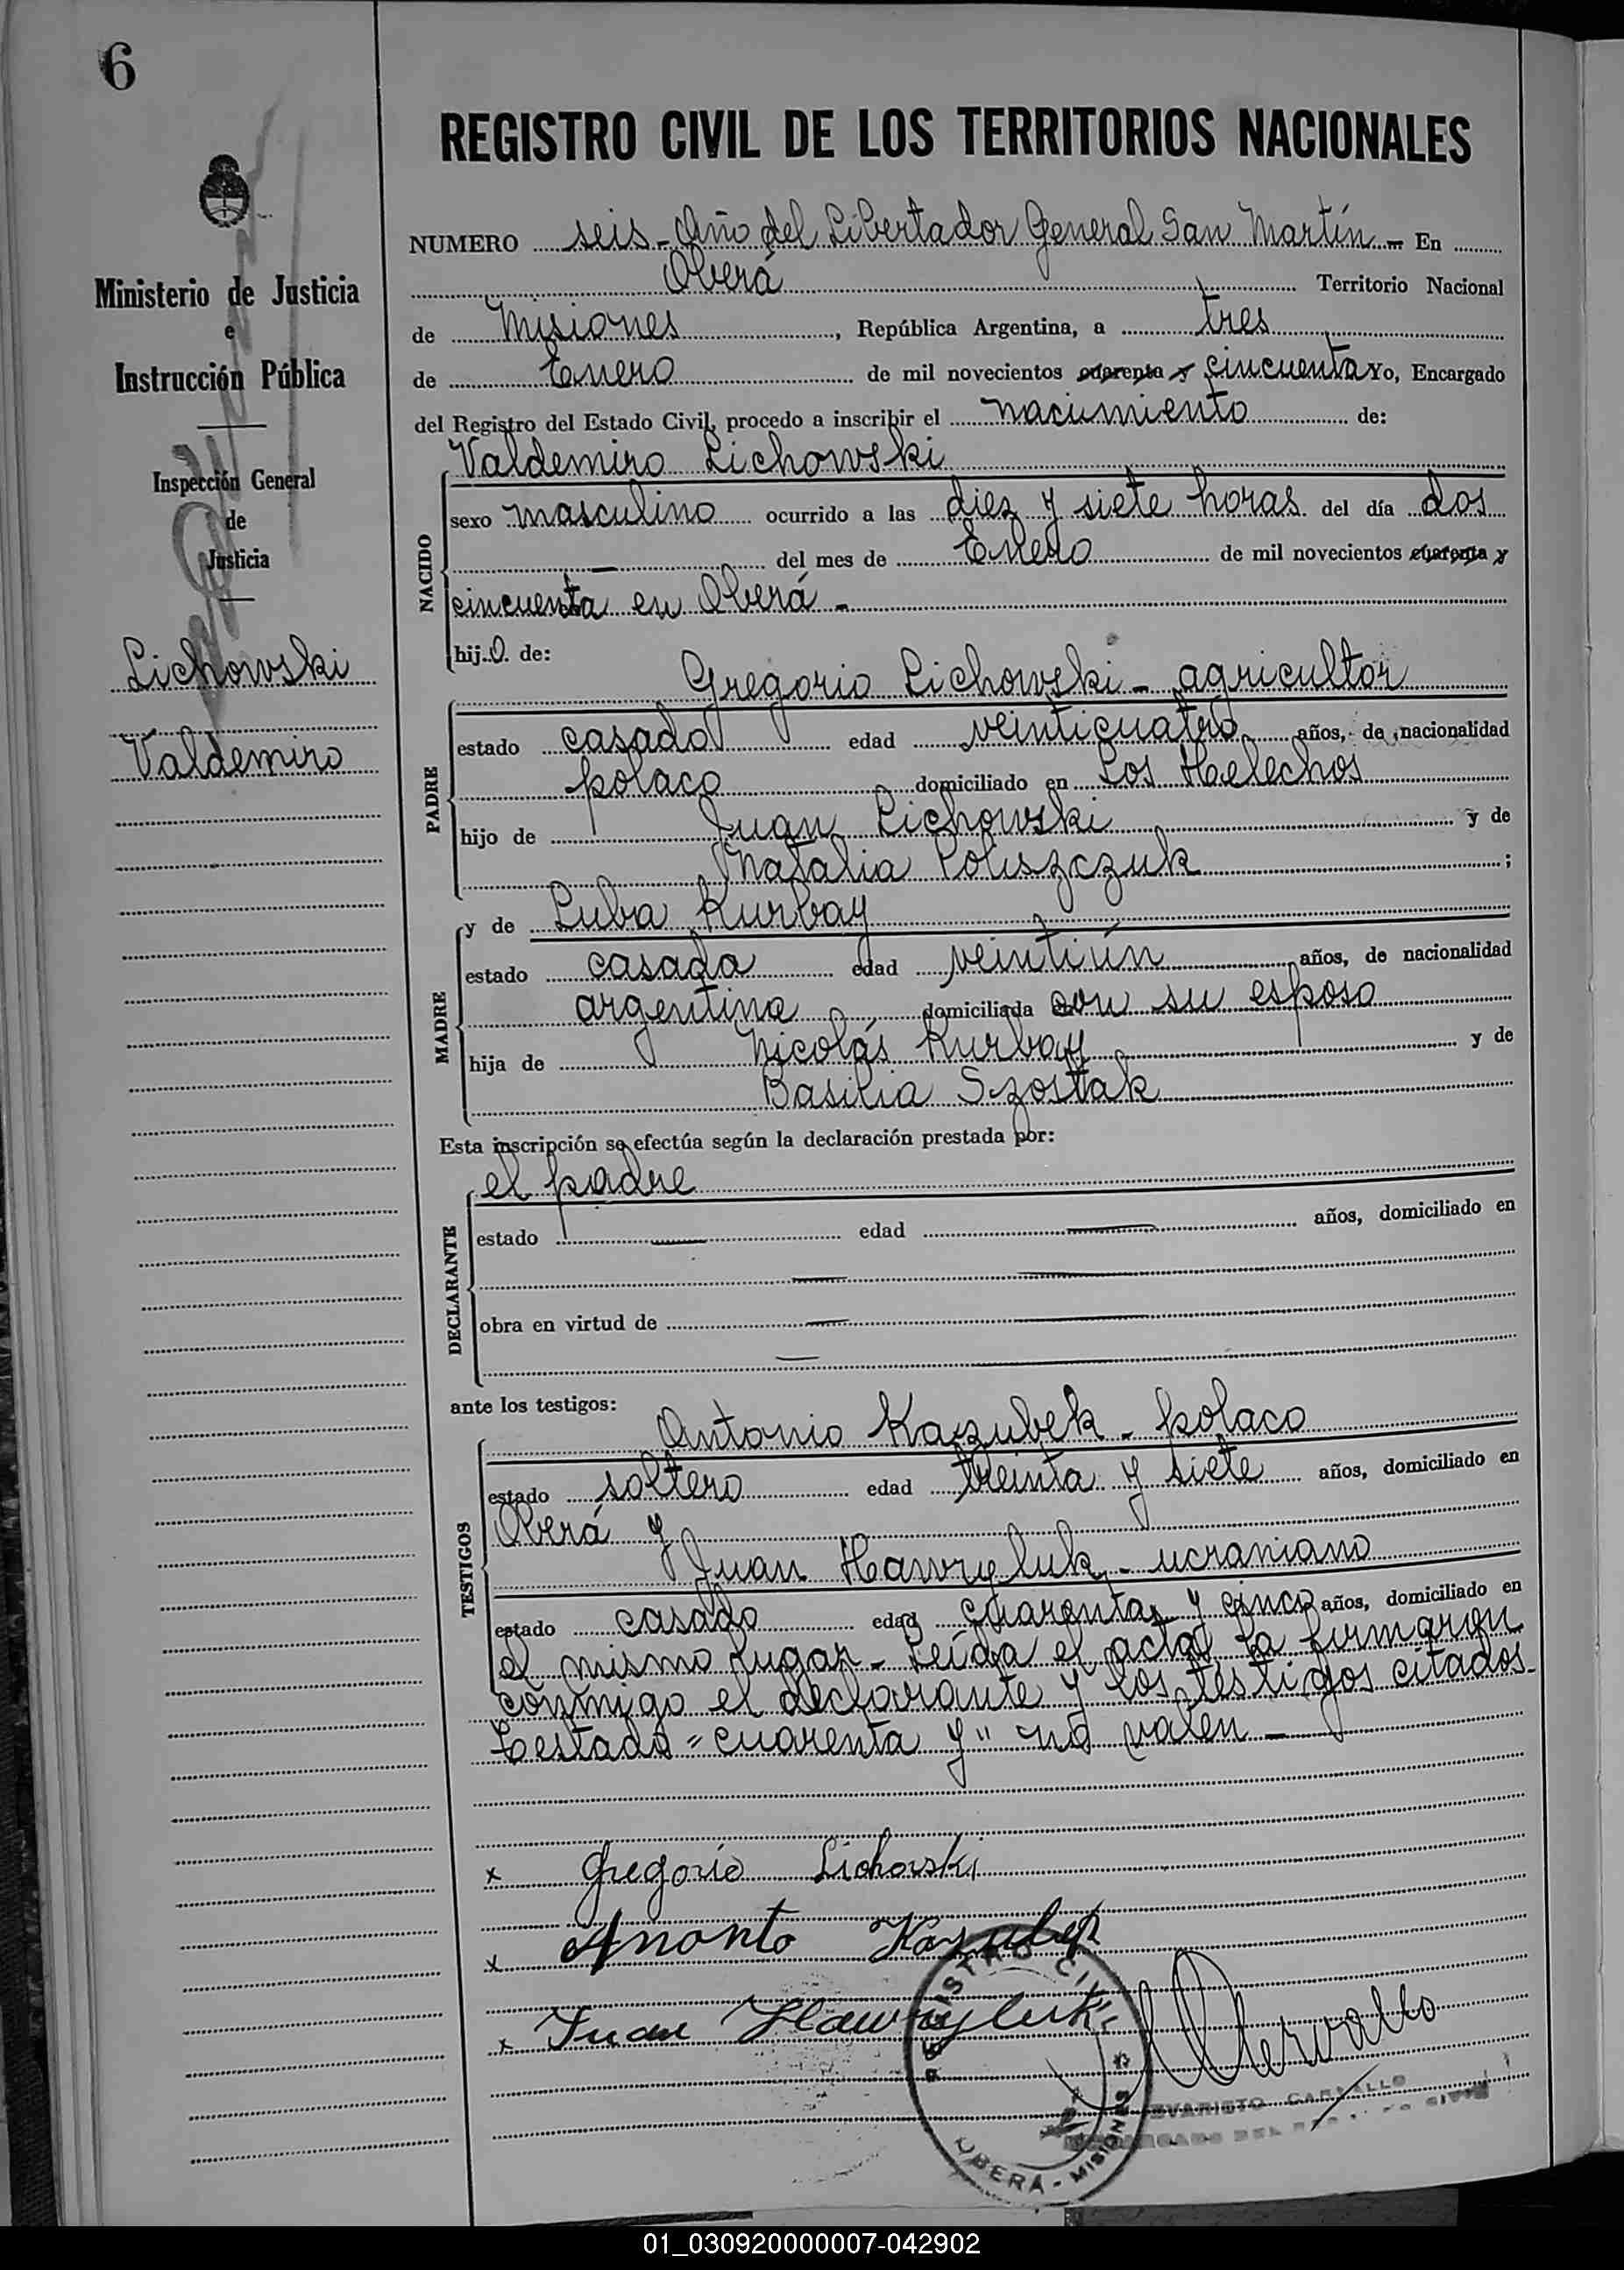 6
REGISTRO CIVIL DE LOS TERRITORIOS NACIONALES
NUMERO seis - Año del Libertador General San Martín - En
Oberá Territorio Nacional
de Misiones, República Argentina, a tres
de Enero de mil novecientos cuarenta y cincuenta Yo, Encargado
del Registro del Estado Civil, procedo a inscribir el nacimiento de:
Valdemiro Lichowski
NACIDO
sexo masculino ocurrido a las diez y siete horas del día dos
— del mes de Enero de mil novecientos cuarenta y
cincuenta en Oberá -
hijo de:
PADRE
Gregorio Lichowski - agricultor
estado casado edad veinticuatro años, de nacionalidad
polaco domiciliado en Los Helechos
hijo de Juan Lichowski y de
Natalia Poliszczuk;
MADRE
y de Luba Kurbay
estado casada edad veintiún años, de nacionalidad
argentina domiciliada con su esposo
hija de Nicolás Kurbay y de
Basilia Szostak
Esta inscripción se efectúa según la declaración prestada por:
DECLARANTE
el padre
estado — edad — años, domiciliado en
— —
obra en virtud de — —
— —
ante los testigos:
TESTIGOS
Antonio Kazubek - polaco
estado soltero edad treinta y siete años, domiciliado en
Oberá y
Juan Hawryluk - ucraniano
estado casado edad cuarenta y cinco años, domiciliado en
el mismo lugar - Leída el acta la firmaron
conmigo el declarante y los testigos citados -
Testado "cuarenta y" no valen -
x Gregorio Lichowski
x Ananto Kazubek
x Juan Hawryluk
Cervallo
REGISTRO CIVIL
OBERÁ - MISIONES
EVARISTO CARVALLO
ENCARGADO DEL REGISTRO CIVIL
Ministerio de Justicia
e
Instrucción Pública
Inspección General
de
Justicia
Lichowski
Valdemiro
01_030920000007-042902